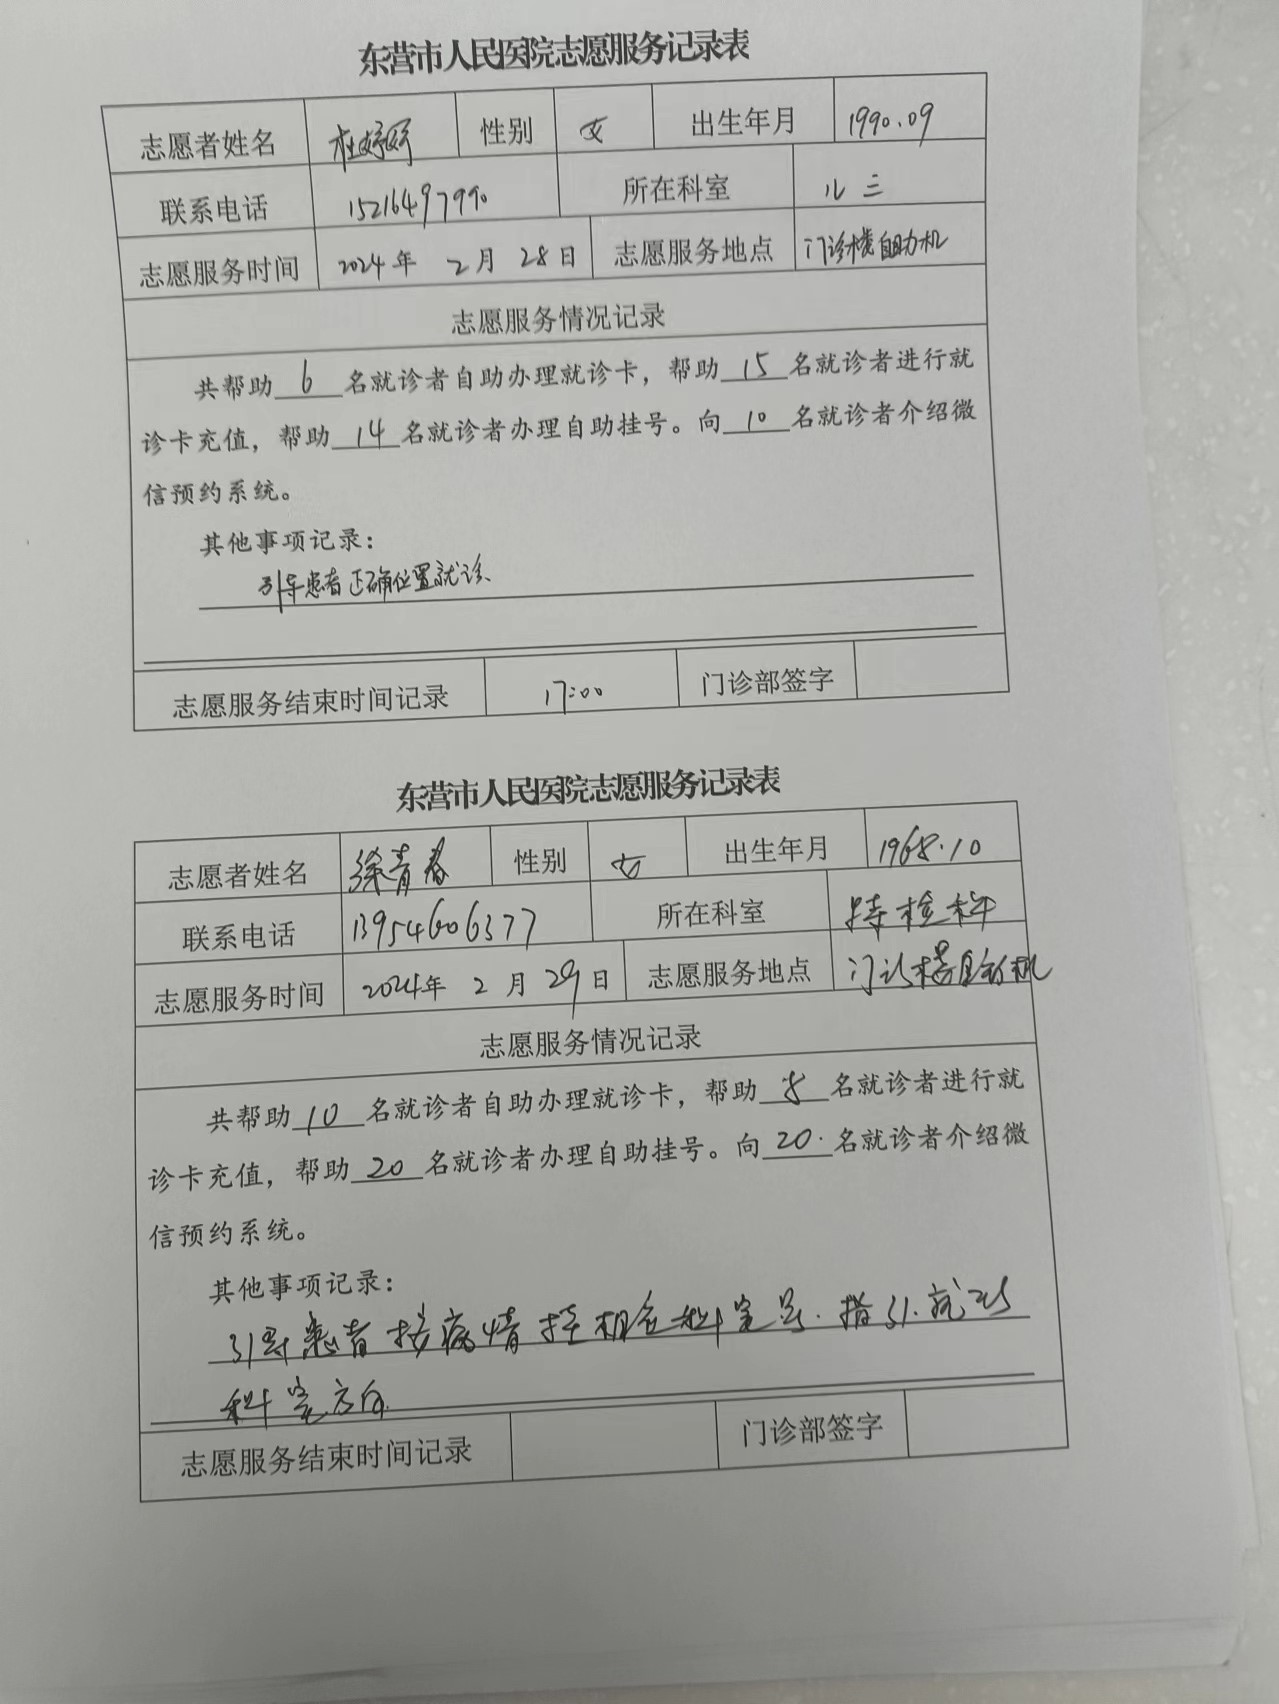 东营市人民医院志愿服务记录表
志愿者姓名 杜婷婷 性别 女 出生年月 1990.09
联系电话 15216497990 所在科室 儿三
志愿服务时间 2024年 2月 28日 志愿服务地点 门诊楼自助机
志愿服务情况记录
共帮助 6 名就诊者自助办理就诊卡，帮助 15 名就诊者进行就
诊卡充值，帮助 14 名就诊者办理自助挂号。向 10 名就诊者介绍微
信预约系统。
其他事项记录：
引导患者正确位置就诊、
志愿服务结束时间记录 17:00 门诊部签字
东营市人民医院志愿服务记录表
志愿者姓名 徐青春 性别 女 出生年月 1968.10
联系电话 13954606377 所在科室 特检科
志愿服务时间 2024年 2月 29日 志愿服务地点 门诊楼自助机
志愿服务情况记录
共帮助 10 名就诊者自助办理就诊卡，帮助 8 名就诊者进行就
诊卡充值，帮助 20 名就诊者办理自助挂号。向 20. 名就诊者介绍微
信预约系统。
其他事项记录：
引导患者按病情挂相应科室号.指引.就诊
科室方向
志愿服务结束时间记录 门诊部签字